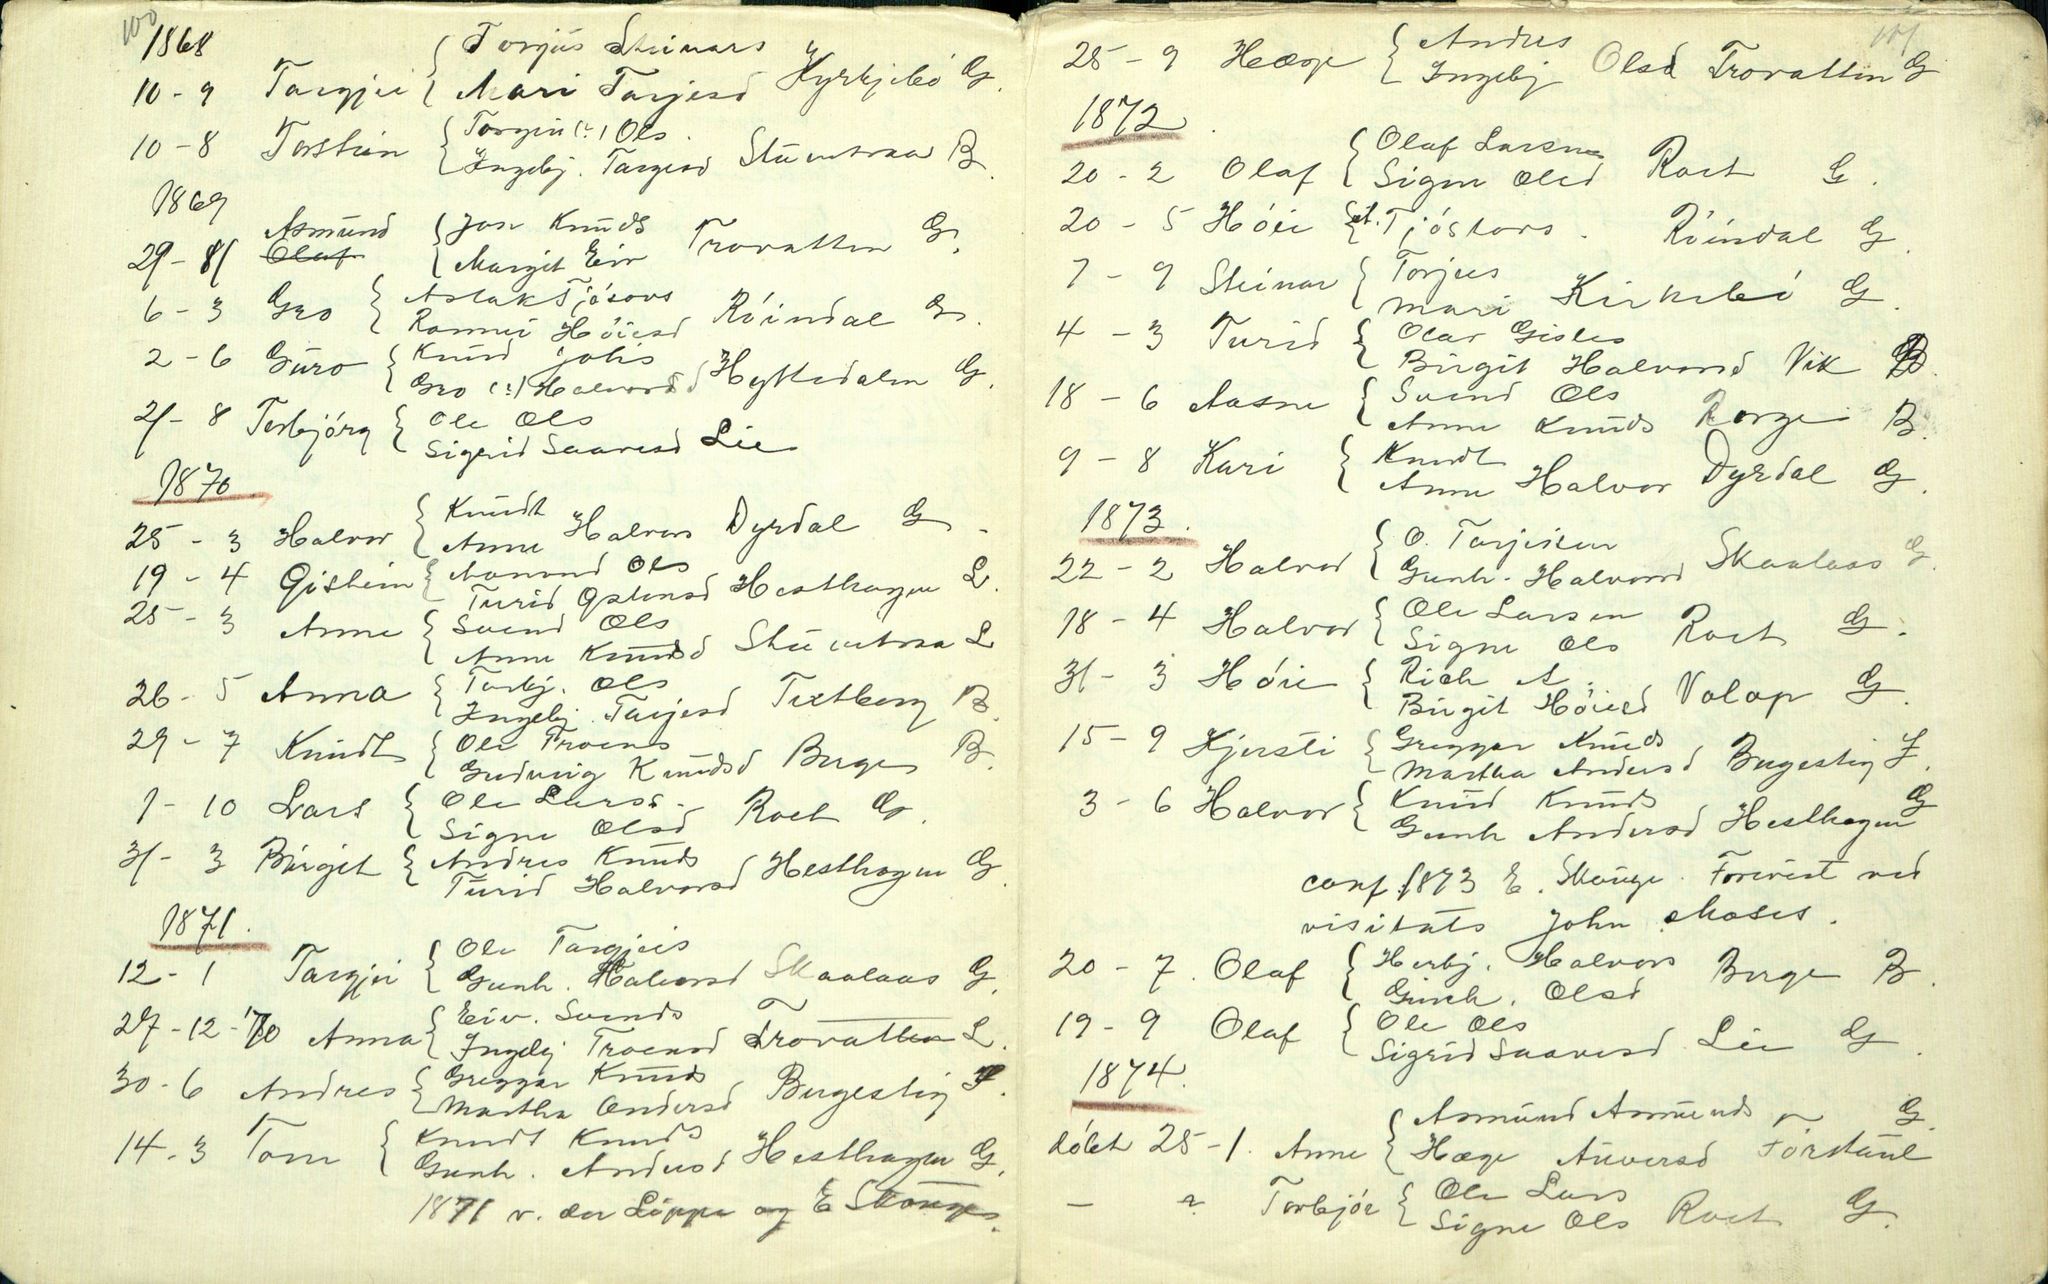 100
1868
Torjus Steinars
10-9 Targjei { Mari Tarjesd Kyrkjebö G.
Torgin (?) Ols.
10-8 Torstein { Ingebj. Targesd B.
1869
Asmund { Jon Knuds
29-8 Olaf { Margit Eiv Trovatten G.
6-3 Gro { Aslak Tjösovs
Ronnei Höiesd Röindal G.
2-6 Guro { Knud Johs
Gro (?) Halvorsd Hyttedalen G.
21-8 Torbjörg { Ole Ols
Sigrid Saavesd Lie
1870
Knudt
25-3 Halvor { Anne Halvors Dyrdal G.
19-4 Gistein { Aamund Ols
Turid Gstensd Hesthagen L.
25-3 Anne { Svend Ols
Anne Knudsd L
26-5 Anna { Torbj. Ols
Ingebj. Tarjesd Textberg B.
29-7 Knudt { Ole Troens
Gudveig Knudsd Berge B.
1-10 Lars { Ole Larss.
Signe Olsd Roet G.
31-3 Birgit { Andres Knuds
Turid Halvorsd Hesthagen G.
1871.
Ole Targjeis
12-1 Targjei { Gunh. Halvorsd Skaalaas G.
27-12-70 Anna { Eiv. Svends
Ingebj Troensd Trovatten L.
30-6 Andres { Greggar Knuds
Martha Andersd Bergestig
14-3 Tone { Knudt Knuds
Gunh. Andersd Hesthagen G.
1871 v. der Lippe og E Skouge.
101
25-9 Hæge { Andres
Ingebj Olsd Trovatten G
1872.
20-2 Olaf { Olaf Larsen
Signe Olsd Roet G.
20-5 Höie Tjöstovs. Röindal G.
7-9 Steinar { Torjus
Mari Kirkebö G.
4-3 Turid { Olav Gisles
Birgit Halvorsd Vik B.
18-6 Aasne { Svend Ols
Anne Knuds Borge B.
9-8 Kari { Knudt
Anne Halvor Dyrdal G.
1873.
22-2 Halvor { O. Tarjeisen
Gunh. Halvorsd Skaalaas G.
18-4 Halvor { Ole Larsen
Signe Ols Roet G.
31-3 Höie { Rich A.
Birgit Höiesd Valap G.
15-9 Kjersti { Greggar Knuds
Martha Andersd Bergestig F.
3-6 Halvor { Knud Knuds G
Gunh Andersd Hesthagen
conf. 1873 E. Skouge. Forevist ved
visitats John Moses.
20-7. Olaf { Herbj. Halvors Berge B.
Gunh. Olsd
19-9 Olaf { Ole Ols
Sigrid Saavesd. Lie G.
1874.
Asmund Asmunds G.
döbt 25-1. Anne { Hæge Auversd
– ? Torbjör { Ole Lars
Signe Ols Roet G.